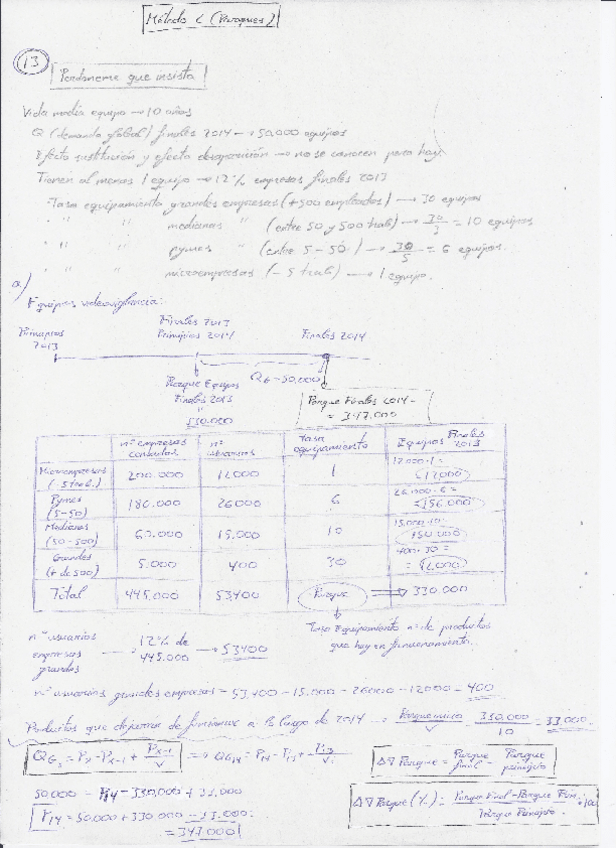 Método C (Parques)
13
Perdóneme que insista
Vida media equipo → 10 años
Q (demanda global) finales 2014 → 50.000 equipos
Efecto sustitución y efecto desaparición → no se conocen pero hay
Tienen al menos 1 equipo → 12% empresas finales 2013
Tasa equipamiento grandes empresas (+500 empleados) → 30 equipos
" " medianas " (entre 50 y 500 trab) → 30/3 = 10 equipos
" " pymes " (entre 5-50) → 30/5 = 6 equipos.
" " microempresas (-5 trab) → 1 equipo.
a)
Equipos videovigilancia:
Principios 2013
Finales 2013
Principios 2014
Finales 2014
QG=50.000
Parque Equipos
Finales 2013
"
330.000
Parque Finales 2014 =
= 347.000
nº empresas consultas
nº usuarios
Tasa equipamiento
Equipos Finales 2013
Microempresas (-5 trab.) 200.000 12000 1 12000·1 = 12000
Pymes (5-50) 180.000 26000 6 26.000·6 = 156.000
Medianas (50-500) 60.000 15.000 10 15.000·10 = 150.000
Grandes (+ de 500) 5.000 400 30 400·30 = 12.000
Total 445.000 53.400 Parque ⇒ 330.000
Tasa Equipamiento nº de productos
que hay en funcionamiento.
nº usuarios
empresas → 12% de 445.000 → 53400
grandes
nº usuarios grandes empresas = 53.400 - 15.000 - 26000 - 12000 = 400
Productos que dejaron de funcionar a lo largo de 2014 → 330.000/10 = 33.000.
∆∇ Parque = Parque final - Parque principio
50.000 = P14 - 330.000 + 33.000
P14 = 50.000 + 330.000 - 33.000 =
= 347.000
∆∇ Parque (%) = ·100